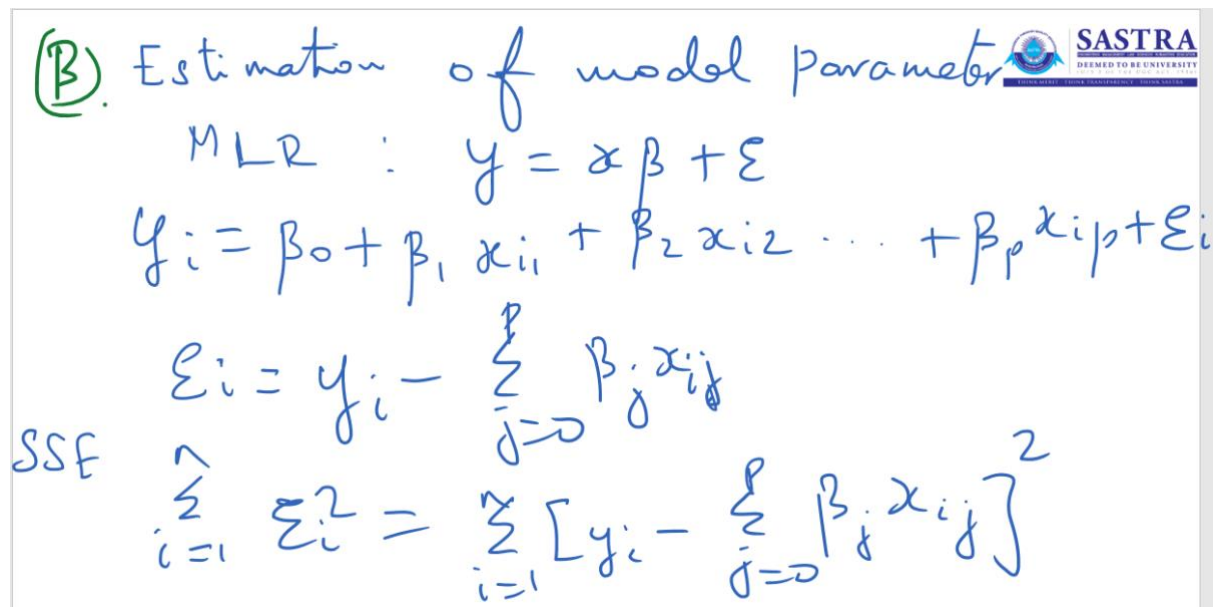 (B). Estimation of model parameter
SASTRA
DEEMED TO BE UNIVERSITY
THINK MERIT | THINK TRANSPARENCY | THINK SASTRA
MLR : y = xβ + ε
yᵢ = β₀ + β₁ xᵢ₁ + β₂ xᵢ₂ ... + βₚ xᵢₚ + εᵢ
εᵢ = yᵢ - Σ_{j=0}^{p} βⱼ xᵢⱼ
SSE Σ_{i=1}^{n} εᵢ² = Σ_{i=1}^{n} [yᵢ - Σ_{j=0}^{p} βⱼ xᵢⱼ]²